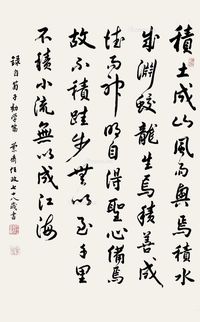 積土成山風雨興焉積水
成淵蛟龍生焉積善成
德而神明自得聖心備焉
故不積跬步無以至千里
不積小流無以成江海
録自荀子勸學篇 蘭齋任政七十八歲書